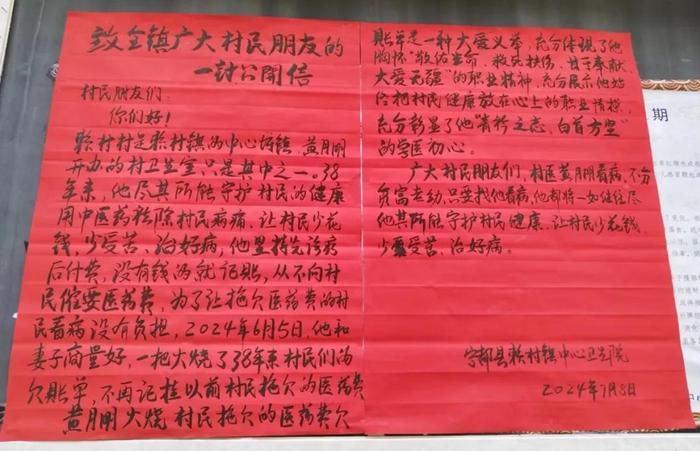 致全镇广大村民朋友的
一封公开信
村民朋友们：
你们好！
赖村村是赖村镇的中心圩镇，黄月朋
开办的村卫生室只是其中之一。38
年来，他尽其所能守护村民的健康
用中医药祛除村民病痛，让村民少花
钱，少受苦、治好病，他坚持先诊疗
后付费，没有钱的就记账，从不向村
民催要医药费，为了让拖欠医药费的村
民看病没有负担，2024年6月5日，他和
妻子商量好，一把火烧了38年来村民们的
欠账单，不再记挂以前村民拖欠的医药费
黄月朋火烧村民拖欠的医药费欠
账单是一种大爱义举，充分体现了他
胸怀"敬佑生命、救死扶伤、甘于奉献、
大爱无疆"的职业精神，充分展示他始
终把村民健康放在心上的职业情操，
充分彰显了他"青衿之志、白首方坚"
的学医初心。
广大村民朋友们，村医黄月朋看病，不分
贫富老幼，只要找他看病，他都将一如既往尽
他其所能守护村民健康、让村民少花钱、
少受苦、治好病。
宁都县赖村镇中心卫生院
2024年7月8日
期